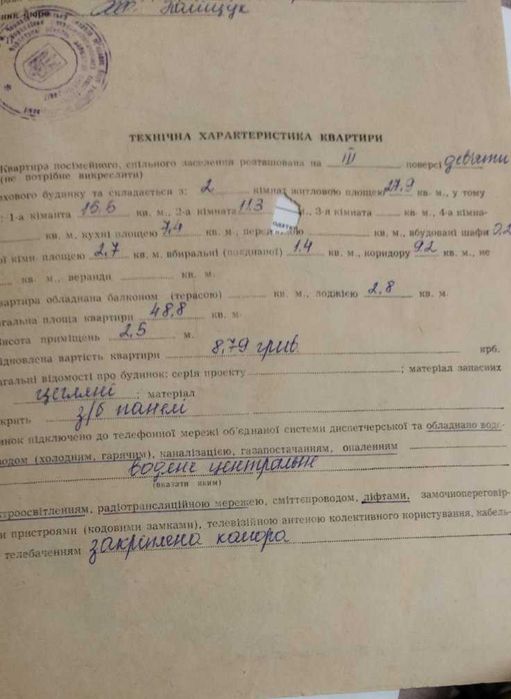 Паліщук
ТЕХНІЧНА ХАРАКТЕРИСТИКА КВАРТИРИ
Квартира посімейного, спільного заселення розташована на III поверсі девяти
(не потрібне викреслити)
хового будинку та складається з: 2 кімнат житловою площею 27,9 кв. м., у тому
1-а кімната 16.6 кв. м., 2-а кімната 11.3 м., 3-я кімната кв. м., 4-а кімна-
кв. м, кухні площею 7,4 кв. м., кв. м., вбудовані шафи 0.2
ої кімн. площею 2,7 кв. м. вбиральні (поєднаної) 1.4 кв. м., коридору 9.2 кв. м., не
кв. м., веранди кв. м.
вартира обладнана балконом (терасою) кв. м., лоджією 2,8 кв. м.
гальна площа квартири 48,8 кв. м.
исота приміщень 2,5 м.
ідновлена вартість квартири 8,79 грив крб.
агальні відомості про будинок: серія проекту ; матеріал
цегляні ; матеріал
крить з/б панелі
инок підключено до телефонної мережі об'єднаної системи диспетчерської та обладнано водо-
водом (холодним, гарячим), каналізацією, газопостачанням, опаленням
водяне центральне
(вказати яким)
ктроосвітленням, радіотрансляційною мережею, сміттєпроводом, ліфтами, замочнопереговір-
и пристроями (кодовими замками), телевізійною антеною колективного користування, кабель-
телебаченням закріплена комора